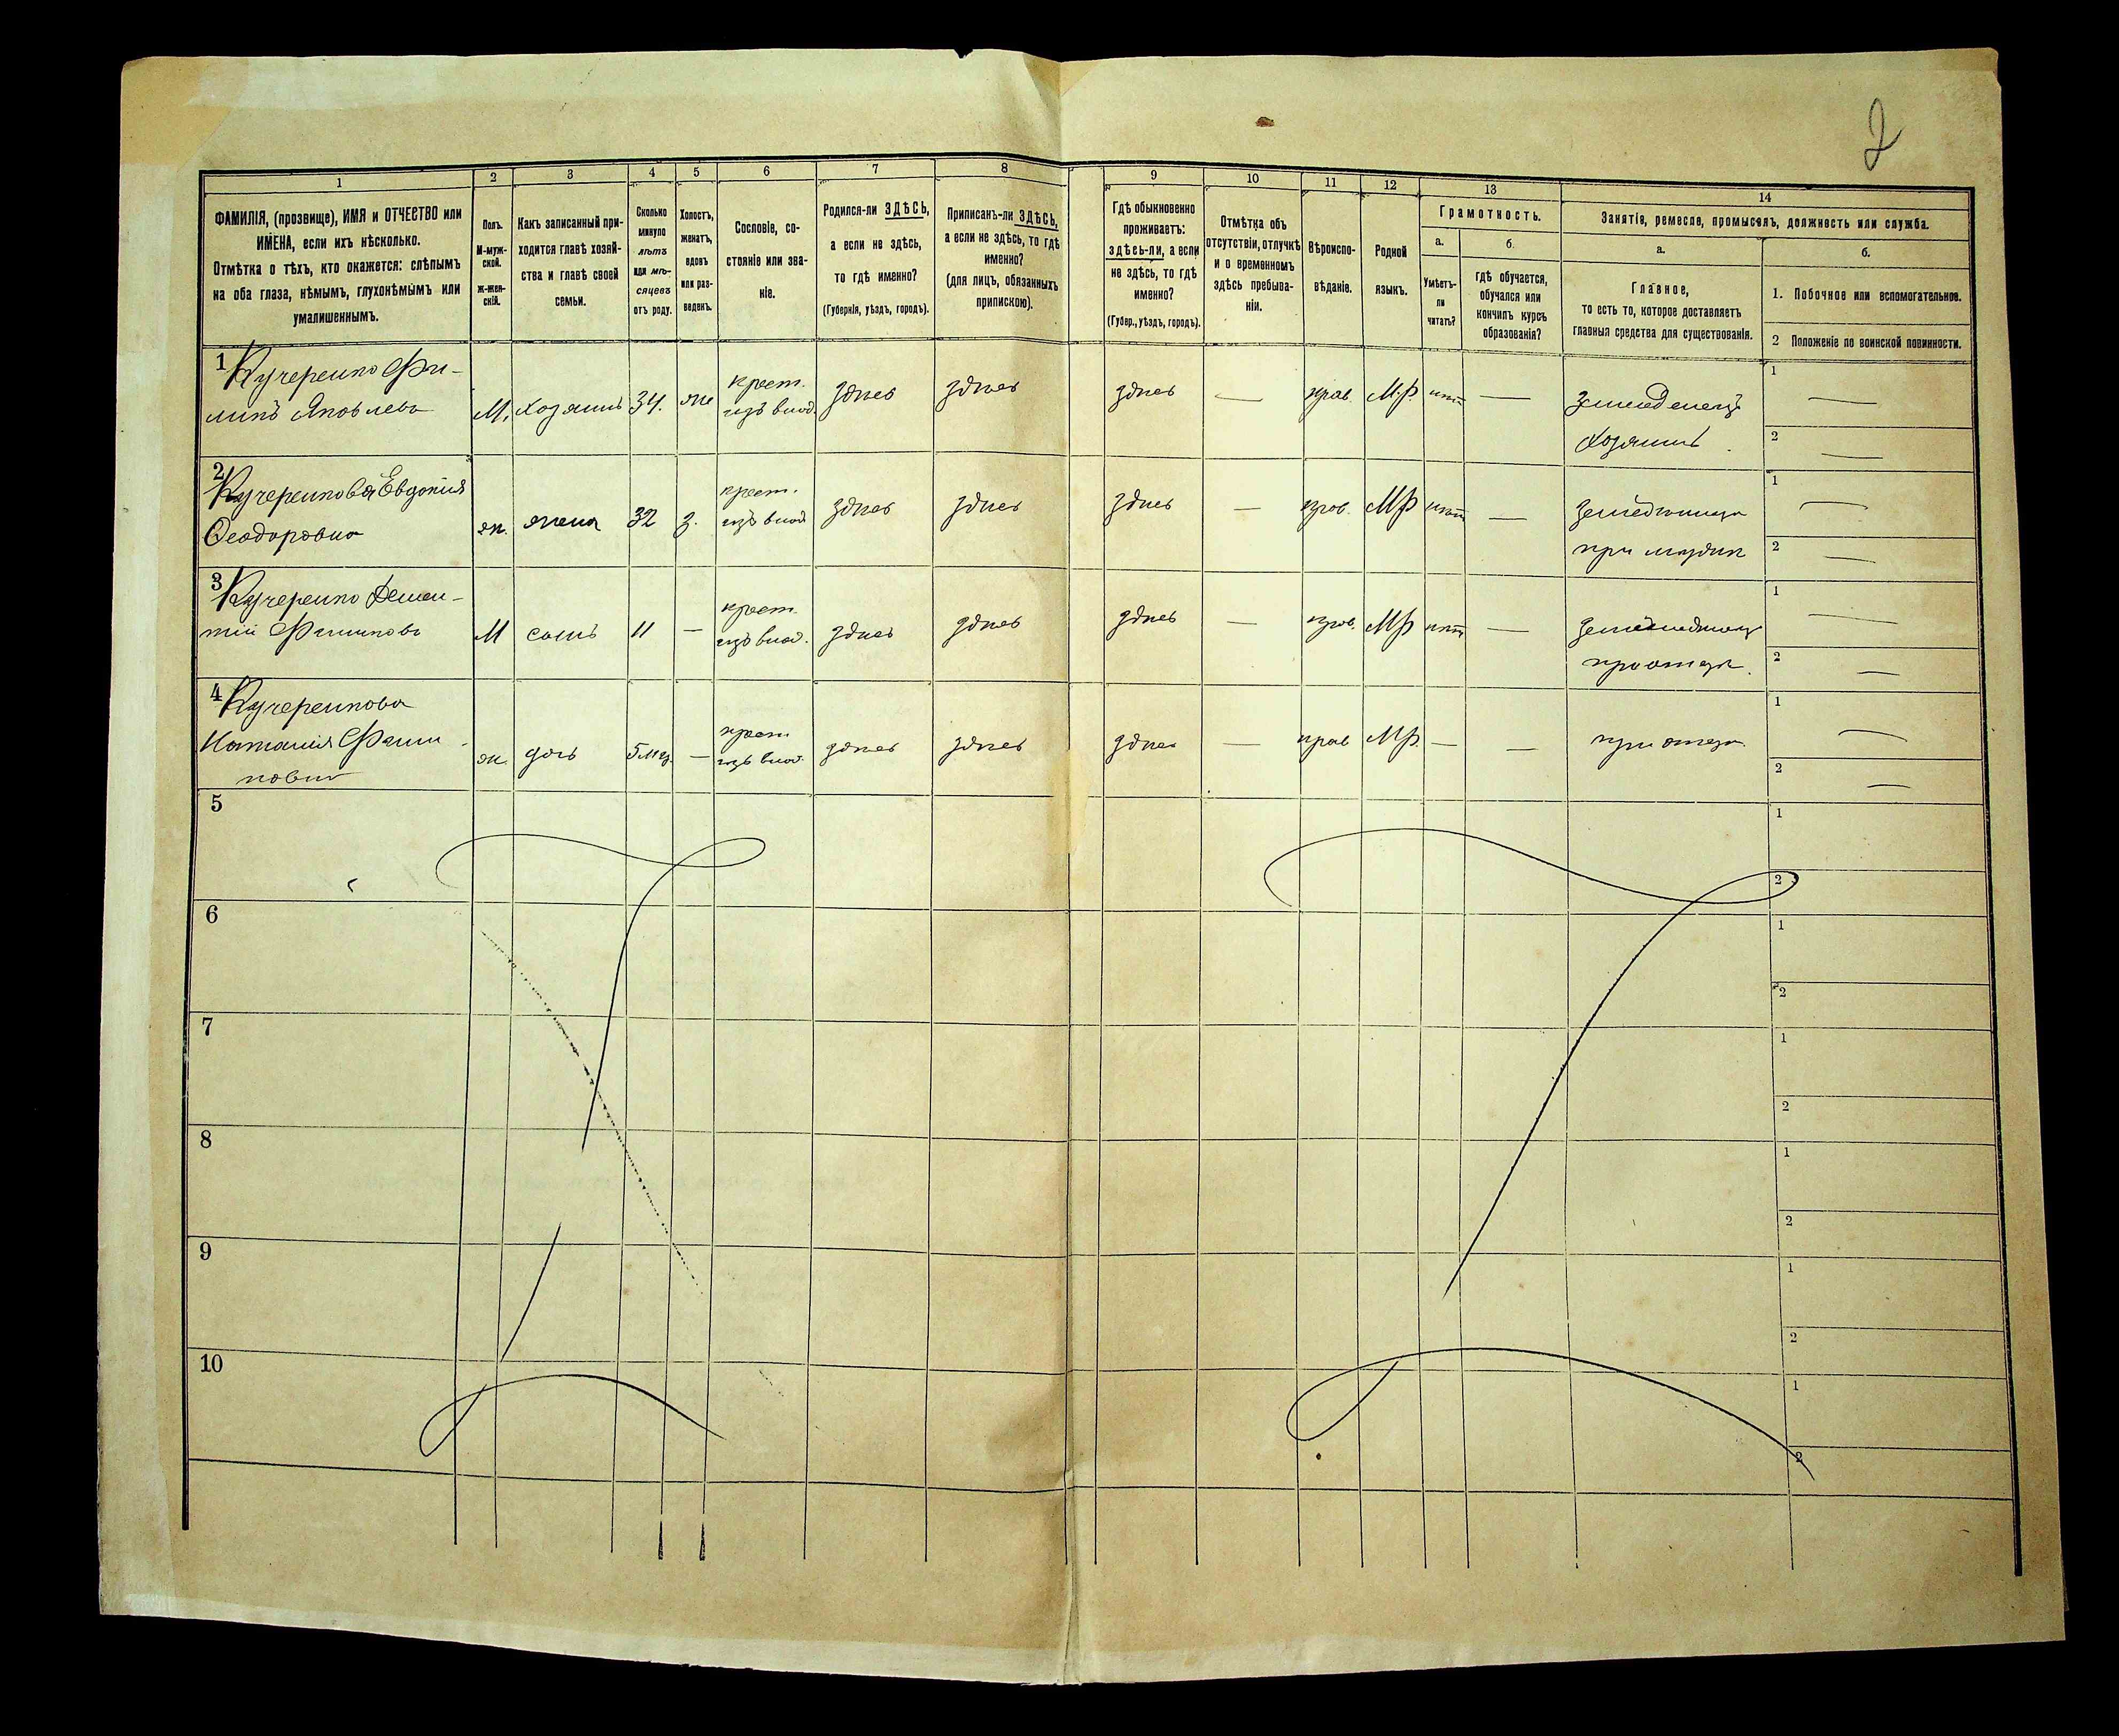 2
1
2
3
4
5
6
7
8
9
10
11
12
13
14
ФАМИЛІЯ, (прозвище), ИМЯ и ОТЧЕСТВО или
ИМЕНА, если ихъ нѣсколько.
Отмѣтка о тѣхъ, кто окажется: слѣпымъ
на оба глаза, нѣмымъ, глухонѣмымъ или
умалишеннымъ.
Полъ.
М-муж-
ской.
Ж-жен-
скій.
Какъ записанный при-
ходится главѣ хозяй-
ства и главѣ своей
семьи.
Сколько
минуло
лѣтъ
или мѣ-
сяцевъ
отъ роду.
Холостъ,
женатъ,
вдовъ
или раз-
веденъ.
Сословіе, со-
стояніе или зва-
ніе.
Родился-ли ЗДѢСЬ,
а если не здѣсь,
то гдѣ именно?
(Губернія, уѣздъ, городъ).
Приписанъ-ли ЗДѢСЬ,
а если не здѣсь, то гдѣ
именно?
(для лицъ, обязанныхъ
припискою).
Гдѣ обыкновенно
проживаетъ:
здѣсь-ли, а если
не здѣсь, то гдѣ
именно?
(Губер., уѣздъ, городъ).
Отмѣтка объ
отсутствіи, отлучкѣ
и о временномъ
здѣсь пребыва-
ніи.
Вѣроиспо-
вѣданіе.
Родной
языкъ.
Грамотность.
а.
Умѣетъ-
ли
читать?
б.
гдѣ обучается,
обучался или
кончилъ курсъ
образованія?
Занятіе, ремесло, промыселъ, должность или служба.
а.
Главное,
то есть то, которое доставляетъ
главныя средства для существованія.
б.
1. Побочное или вспомогательное.
2 Положеніе по воинской повинности.
1 Кучеренко Фи-
липъ Яковлевъ
М.
хозяинъ
34.
же
крест.
изъ влад.
здѣсь
здѣсь
здѣсь
—
прав.
М.Р.
нѣт
—
Земледелецъ
хозяинъ
1 —
2 —
2 Кучеренкова Евдокія
Феодоровна
ж.
жена
32
з.
крест.
изъ влад
здѣсь
здѣсь
здѣсь
—
прав.
МР
нѣт
—
при мужѣ
1 —
2 —
3 Кучеренко Демен-
тій Филиповъ
М
сынъ
11
—
крест.
изъ влад.
здѣсь
здѣсь
здѣсь
—
прав.
МР
нѣт
—
при отцѣ.
1 —
2 —
4 Кучеренкова
Наталія Фили
повна
ж.
дочь
5 мѣц.
—
крест
изъ влад.
здѣсь
здѣсь
здѣсь
—
прав
М.Р.
—
—
при отцѣ.
1 —
2 —
5
1
2
6
1
2
7
1
2
8
1
2
9
1
2
10
1
2